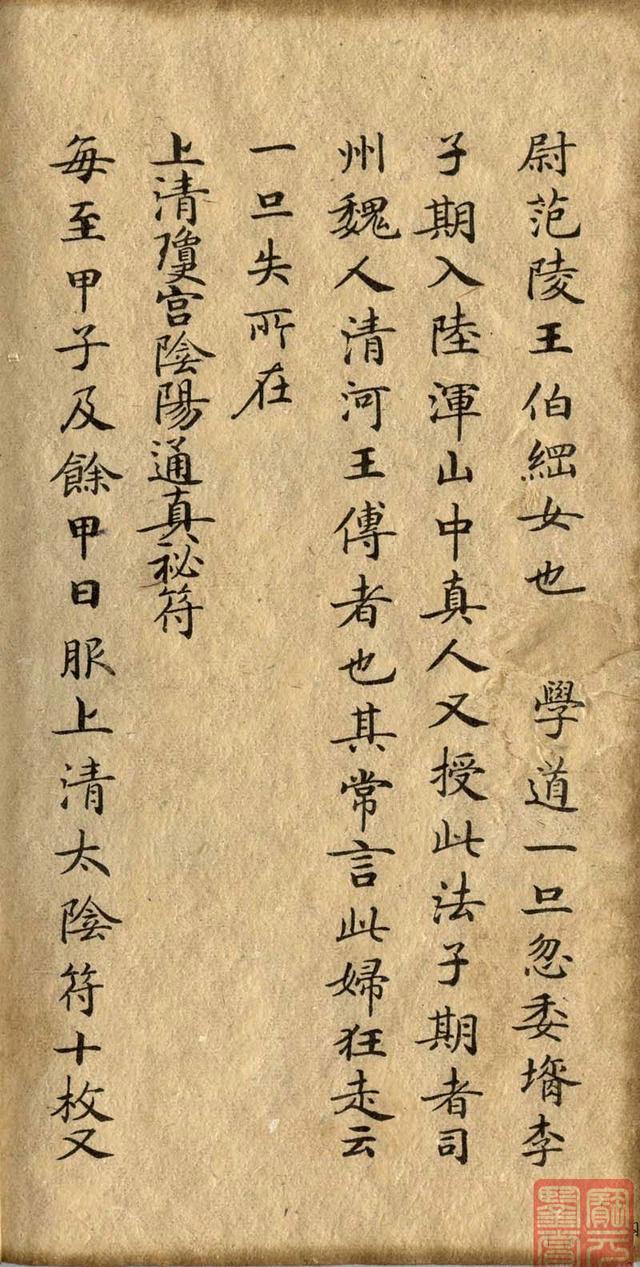 尉范陵王伯綱女也 學道一旦忽委壻李
子期入陸渾山中真人又授此法子期者司
州魏人清河王傳者也其常言此婦狂走云
一旦失所在
上清瓊宮陰陽通真祕符
每至甲子及餘甲日服上清太陰符十枚又